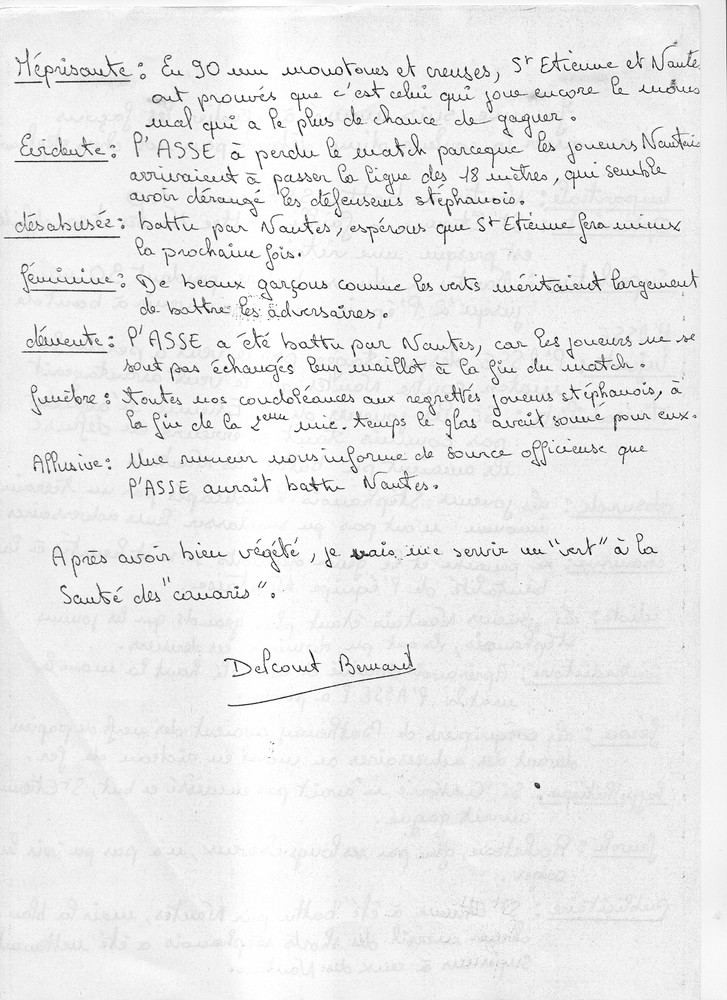 Méprisante : En 90 mm monotones et creuses, St Etienne et Nante
ont prouvés que c'est celui qui joue encore le moins
mal qui a le plus de chance de gagner.
Evidente : l'ASSE à perdu le match parceque les joueurs Nantais
arrivaient à passer la ligne des 18 mètres, qui semble
avoir dérangé les défenseurs stéphanois.
désabusée : battu par Nantes, espérons que St Etienne fera mieux
la prochaine fois.
féminine : De beaux garçons comme les verts méritaient largement
de battre les adversaires.
démente : l'ASSE a été battu par Nantes, car les joueurs ne se
sont pas échangés leur maillot à la fin du match.
funèbre : toutes nos condoléances aux regrettés joueurs stéphanois, à
la fin de la 2eme mic.temps le glas avait sonné pour eux.
Allusive : Une rumeur nous informe de source officieuse que
l'ASSE aurait battu Nantes.
Après avoir bien végété, je vais me servir un "vert" à la
Santé des "canaris".
Delcourt Bernard